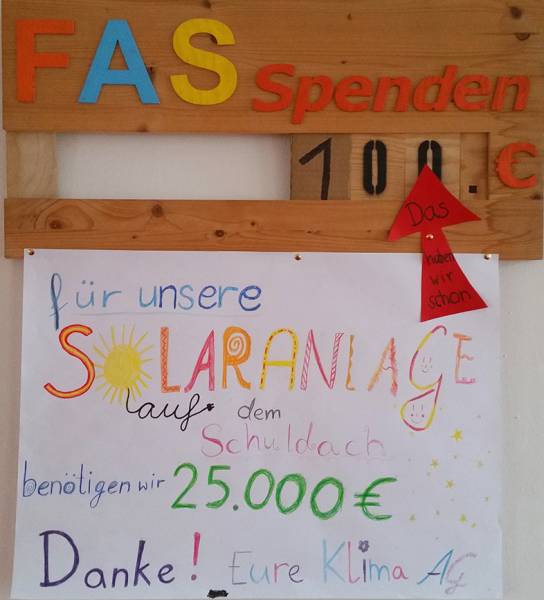 FAS Spenden
100.€
Das
haben
wir
schon
für unsere
SOLARANLAGE
auf dem
Schuldach
benötigen wir 25.000€
Danke! Eure Klima AG